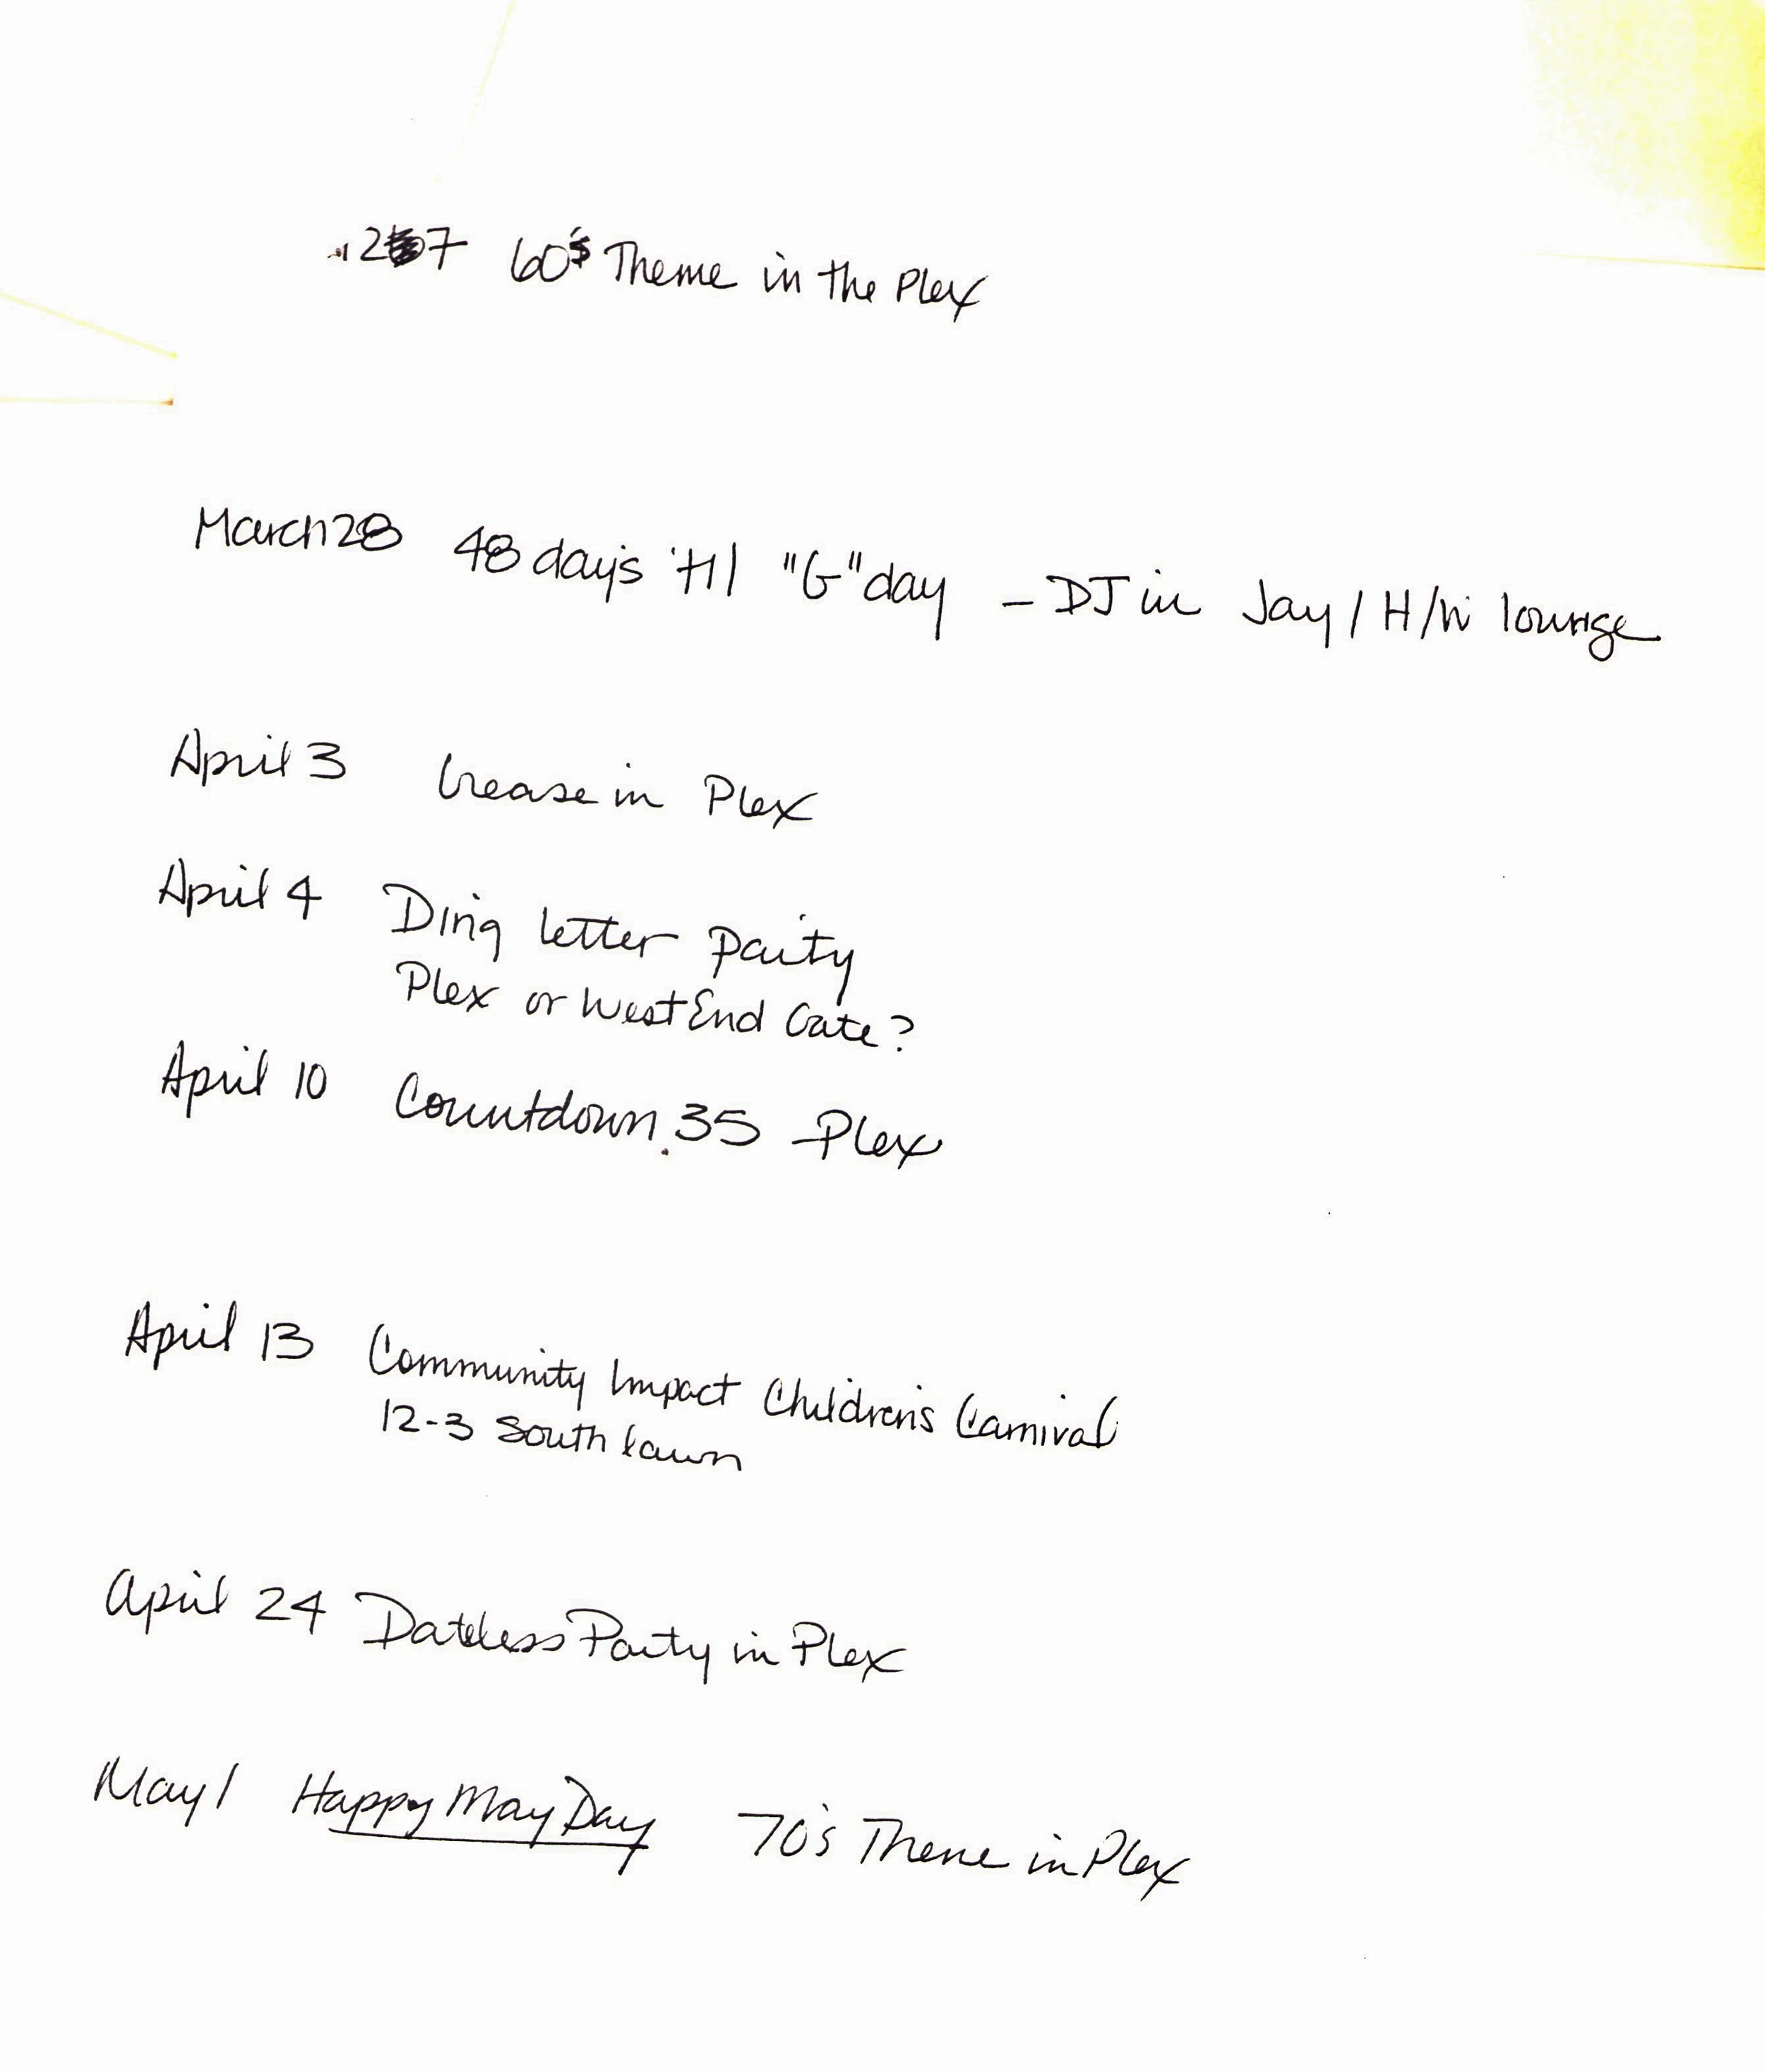 27 60's Theme in the Plex
March 28 48 days 'til "G" day - DJ in Jay / H/W lounge
April 3 Grease in Plex
April 4 Ding letter party
Plex or West End Gate?
April 10 Countdown 35 - Plex
April 13 Community Impact Children's Carnival
12-3 South Lawn
April 24 Dateless Party in Plex
May 1 Happy May Day 70's Theme in Plex